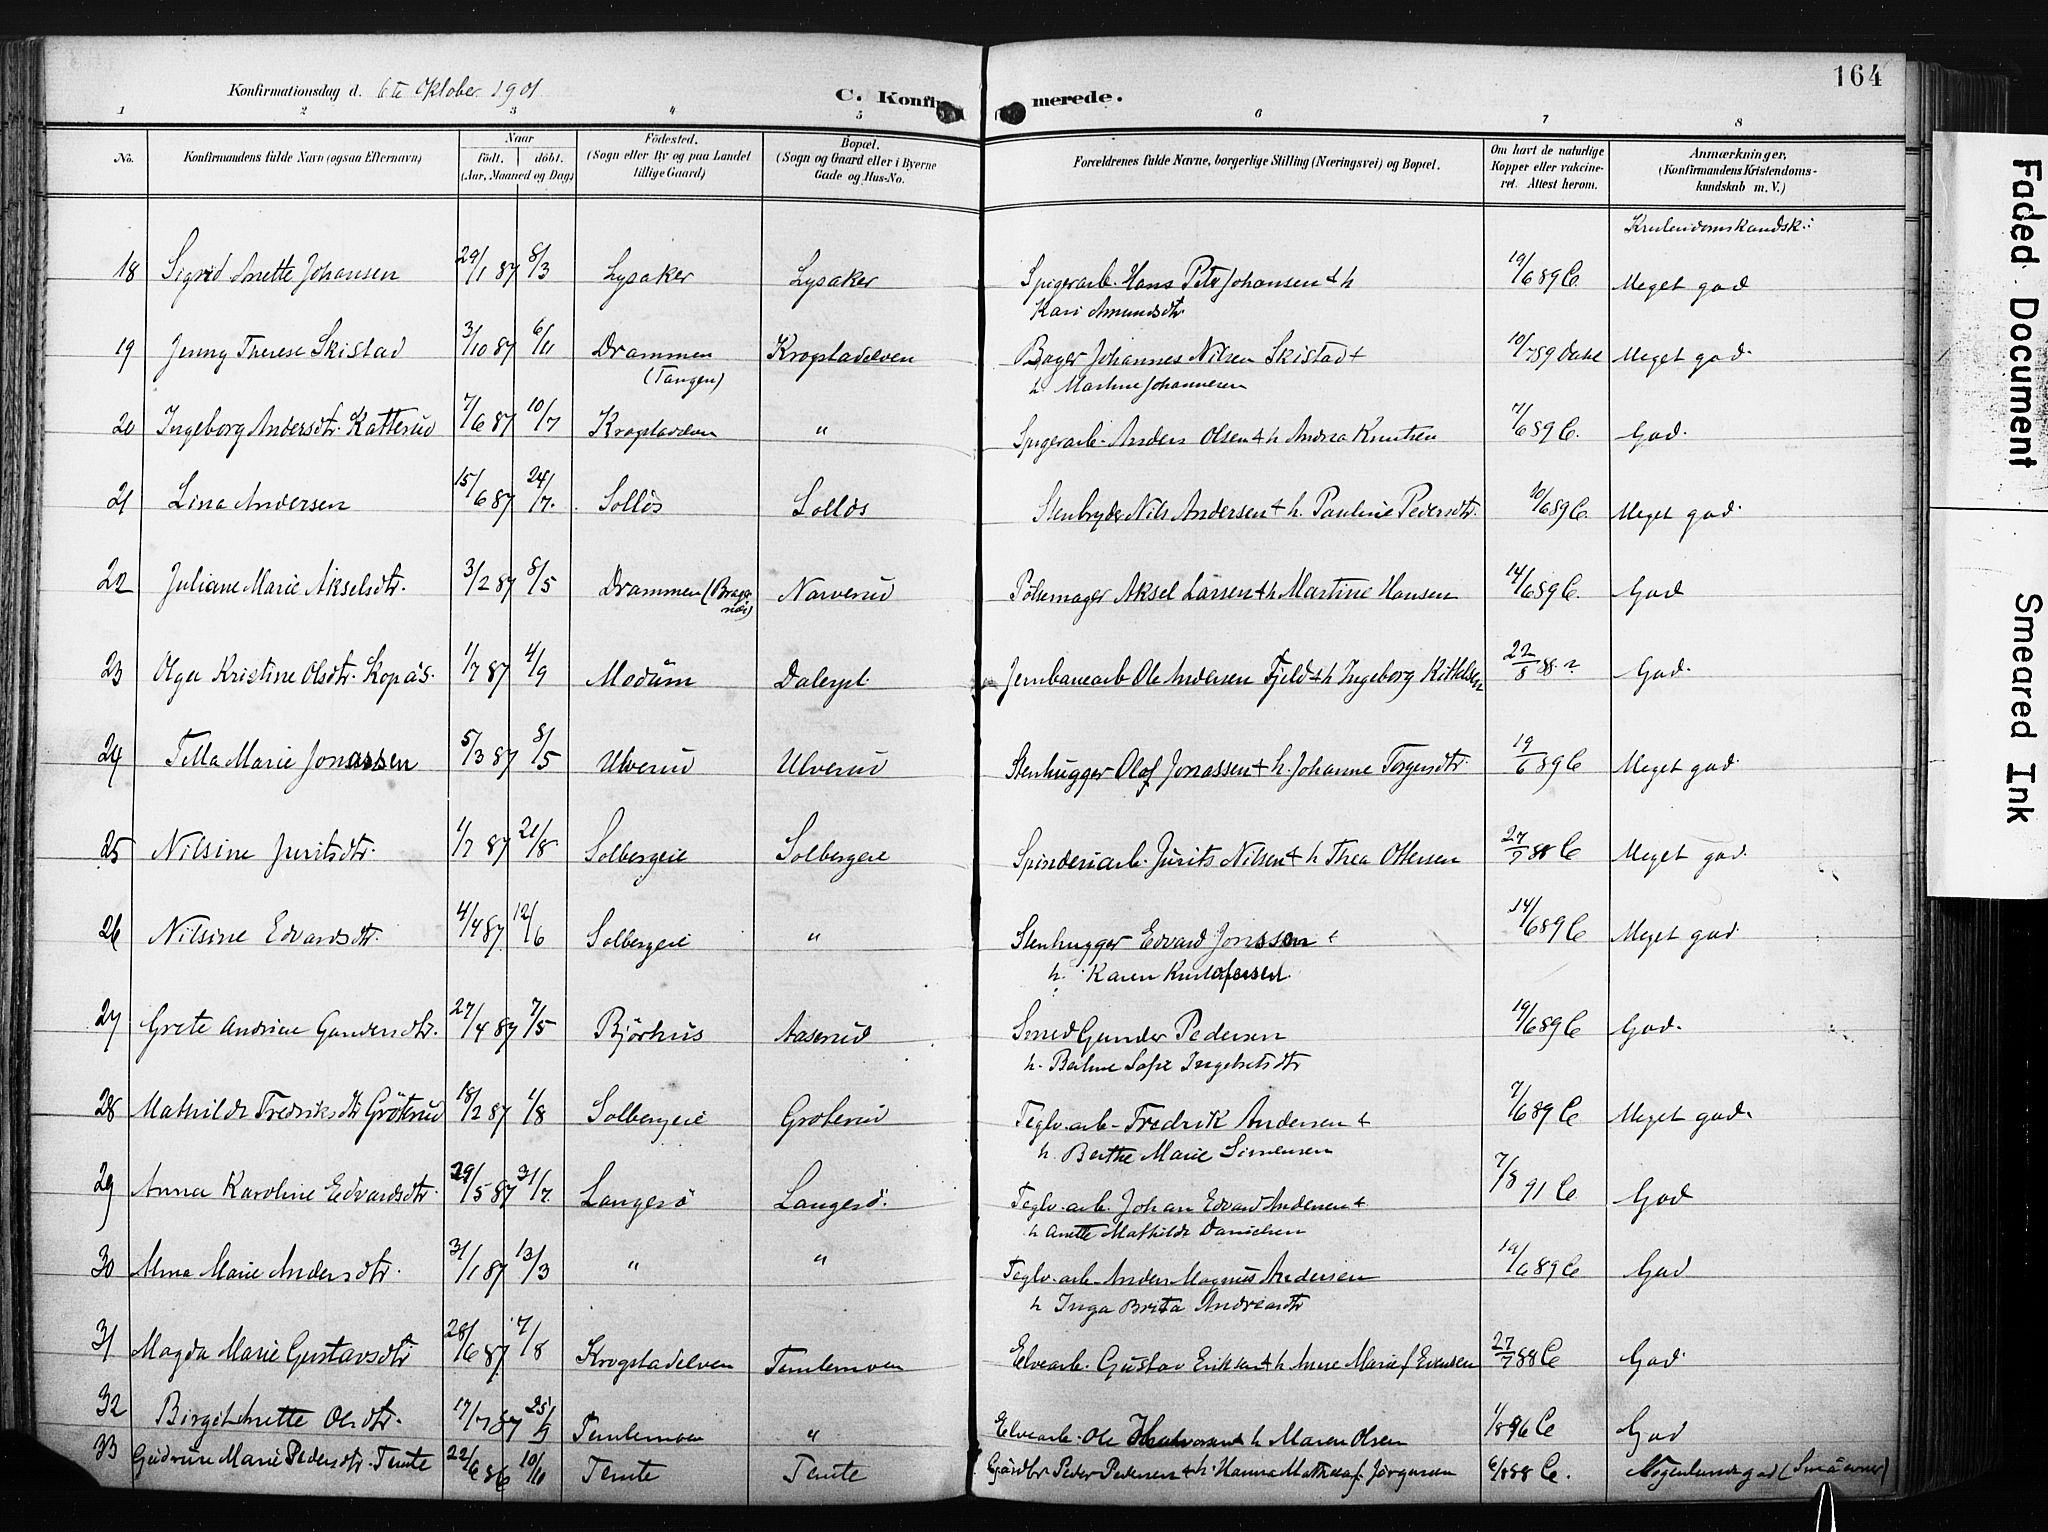 164
Konfirmationsdag d. 6te Oktober 1901
C. Konfirmerede.
1 2 3 4 5 6 7 8
No. Konfirmandens fulde Navn (ogsaa Efternavn) Naar født. døbt. (Aar, Maaned og Dag) Fødested. (Sogn eller By og paa Landet tillige Gaard) Bopæl. (Sogn og Gaard eller i Byerne Gade og Hus-No. Forældrenes fulde Navne, borgerlige Stilling (Næringsvei) og Bopæl. Om havt de naturlige Kopper eller vakcineret. Attest herom. Anmærkninger. (Konfirmandens Kristendomskundskab m. V.)
Kristendomskundsk.:
18 Sigrid Anette Johansen 29/1 87 8/3 Lysaker Lysaker Spigerarb. Hans Petr Johansen + h 19/6 89 C. Meget god
Kari Amundsdtr.
19 Jenny Therese Skistad 3/10 87 6/11 Drammen Krogstadelven Bager Johannes Nilsen Skistad + 10/7 89 Meget god.
(Tangen) h. Martine Johannesen
20 Ingeborg Andersdtr. Katterud 7/6 87 10/7 Krogstadelven " Spigerarb. Anders Olsen + h Andrea Knutsen 7/6 89 C. God.
21 Lina Andersen 15/6 87 24/7. Solløs Solløs Stenbryder Nils Andersen + h. Pauline Pedersdtr. 20/6 89 C. Meget god.
22 Juliane Marie Akselsdtr. 3/2 87 8/5 Drammen (Bragernæs) Narverud Pølsemager Aksel Larsen + h Martine Hansen 14/6 89 C. God
23 Olga Kristine Olsdtr. Kopås. 1/7 87 4/9 Modum Dalerpl. Jernbanearb Ole Andersen Fjeld + h Ingeborg Kittelsen 22/8 88. God.
24 Tilla Marie Jonassen 5/3 87 8/5 Ulverud Ulverud Stenhugger Olaf Jonassen + h. Johanne Torgersdtr. 19/6 89 C Meget god.
25 Nilsine Juritsdtr. 1/7 87 21/8 Solbergeie Solbergeie Spinderiarb. Jurits Nilsen + h Thea Ottersen 27/7 88 C Meget god.
26 Nilsine Edvardsdtr. 4/4 87. 12/6 Solbergeie " Stenhugger Edvard Jonsson + 14/6 89 C Meget god.
h. Karen Kristofersen.
27 Grete Andrine Gundersdtr. 27/4 87 7/5 Björhus Aaserud Smed Gunder Pedersen 19/6 89 C God.
h. Beline Sofie Ingebretsdtr
28 Mathilde Fredriksdtr Grøterud 18/2 87 1/8 Solbergeie Groterud Teglv.arb. Fredrik Andersen + 7/6 89 C Meget god.
h. Berthe Marie Simensen
29 Anna Karoline Edvardsdtr. 29/5 87 31/7. Langesø Langesø. Teglv.arb. Johan Edvard Andersen + 7/8 91 C God
h Anette Mathilde Danielsen
30 Alma Marie Andersdtr. 31/1 87 13/3 " " Teglv.arb. Anders Magnus Andersen 19/6 89 C God
h Inga Brita Andreasdtr
31 Magda Marie Gustavsdtr 28/6 87 7/8 Krogstadelven Temlemoen Elvearb. Gustav Eriksen + h Anne Marie f Evensen 27/7 88 C God.
32 Birgit Anette Olsdtr. 17/7 87 25/9 Temlemoen " Elvearb. Ole Halvorsen + h Maren Olsen 1/8 96 C God
33 Gudrun Marie Pedersdtr. Temte 22/6 86 10/10 Temte Temte Gårdbr Peder Pedersen + h. Hanna Mathea f. Jörgensen 6/8 88 C. Nogenlunde god (Små evner)
Faded Document
Smeared Ink